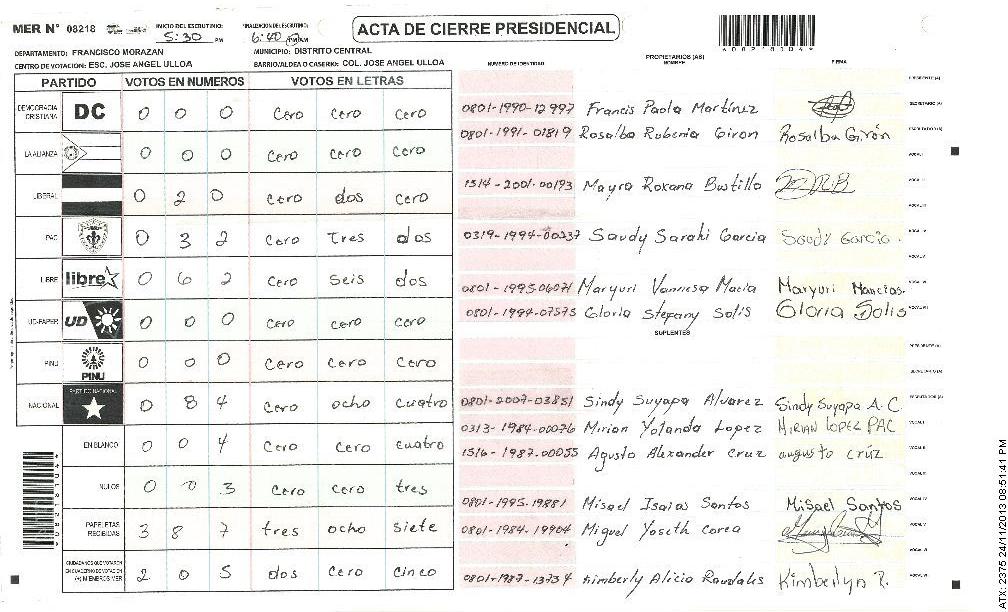 MER N° 08218
INICIO DEL ESCRUTINIO: 5:30 PM
FINALIZACION DEL ESCRUTINIO: 6:40 PM AM
ACTA DE CIERRE PRESIDENCIAL
DEPARTAMENTO: FRANCISCO MORAZAN
MUNICIPIO: DISTRITO CENTRAL
CENTRO DE VOTACION: ESC. JOSE ANGEL ULLOA
BARRIO/ALDEA O CASERIO: COL. JOSE ANGEL ULLOA
PARTIDO VOTOS EN NUMEROS VOTOS EN LETRAS
DEMOCRACIA CRISTIANA DC 0 0 0 Cero Cero Cero
LA ALIANZA 0 0 0 Cero Cero Cero
LIBERAL 0 2 0 Cero dos Cero
PAC 0 3 2 Cero Tres dos
LIBRE libre 0 6 2 Cero Seis dos
UD-FAPER UD 0 0 0 Cero Cero Cero
PINU PINU 0 0 0 Cero Cero Cero
NACIONAL PARTIDO NACIONAL 0 8 4 Cero ocho cuatro
EN BLANCO 0 0 4 Cero Cero cuatro
NULOS 0 0 3 Cero Cero tres
PAPELETAS RECIBIDAS 3 8 7 tres ocho siete
CIUDADANOS QUE VOTARON EN CUADERNO DE VOTACION (+) MIEMBROS MER 2 0 5 dos Cero Cinco
NUMERO DE IDENTIDAD PROPIETARIOS (AS) NOMBRE FIRMA
PRESIDENTE (A)
0801-1990-12997 Francis Paola Martínez SECRETARIO (A)
0801-1991-01819 Rosalba Rubenia Giron Rosalba Girón ESCRUTADOR (A)
VOCAL I
1514-2001-00193 Mayra Roxana Bustillo VOCAL II
VOCAL III
0319-1994-00337 Saudy Sarahi Garcia Saudy Garcia. VOCAL IV
VOCAL V
0801-1995-06071 Maryuri Vannesa Macia Maryuri Mancias. VOCAL VI
0801-1994-07575 Gloria Stefany Solis Gloria Solis VOCAL VII
SUPLENTES
PRESIDENTE (A)
SECRETARIO (A)
0801-2007-03851 Sindy Suyapa Alvarez Sindy Suyapa A.C ESCRUTADOR (A)
0313-1984-00076 Mirian Yolanda Lopez MIRIAN LOPEZ PAC VOCAL I
1516-1987-00055 Agusto Alexander Cruz augusto crúz VOCAL II
VOCAL III
0801-1995-19881 Misael Isaias Santos Misael Santos VOCAL IV
0801-1984-19904 Miguel Yoseth Corea VOCAL V
VOCAL VI
0801-1987-13734 Kimberly Alicio Raudales Kimberlyn R. VOCAL VII
ATX: 2375 24/11/2013 08:51:41 PM